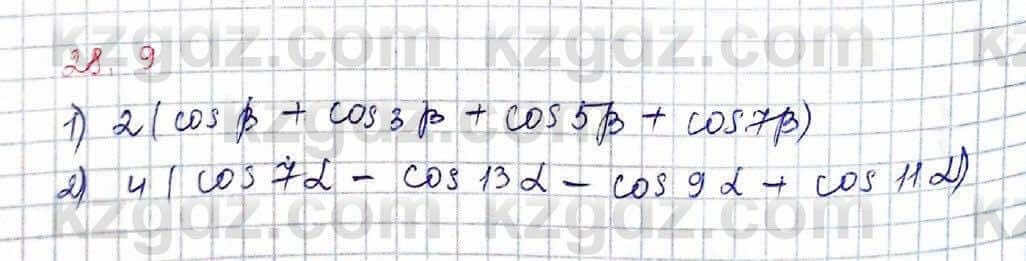 kzgdz.com kzgdz.com k
28.9
1) 2(cos β + cos 3β + cos 5β + cos 7β)
2) 4(cos 7α - cos 13α - cos 9α + cos 11α)
kzgdz.com kzgdz.com k